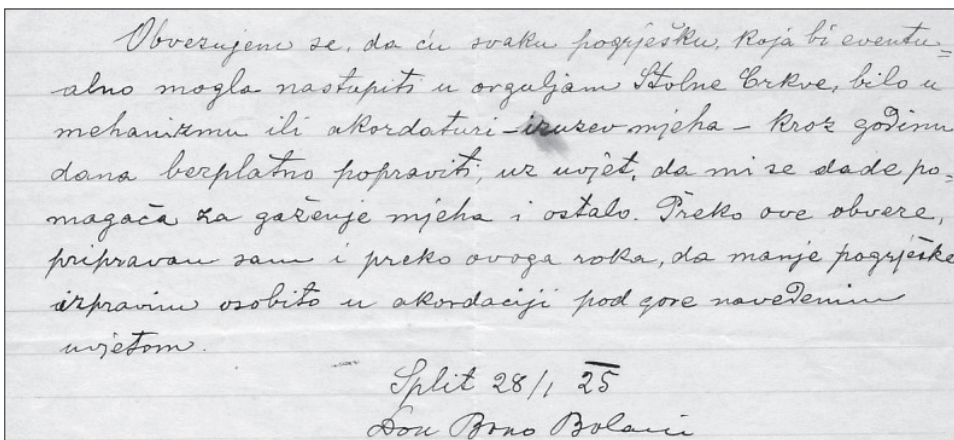 Obvezujem se, da ću svaku pogrješku, koja bi eventu=
alno mogla nastupiti u orguljam Stolne Crkve, bilo u
mehanizmu ili akordaturi – izuzev mjeha – kroz godinu
dana bezplatno popraviti, uz uvjet, da mi se dade po=
magača za gaženje mjeha i ostalo. Preko ove obveze,
pripravan sam i preko ovoga roka, da manje pogrješke
izpravim osobito u akordaciji pod gore navedenim
uvjetom.
Split 28/1 25
Don Brno